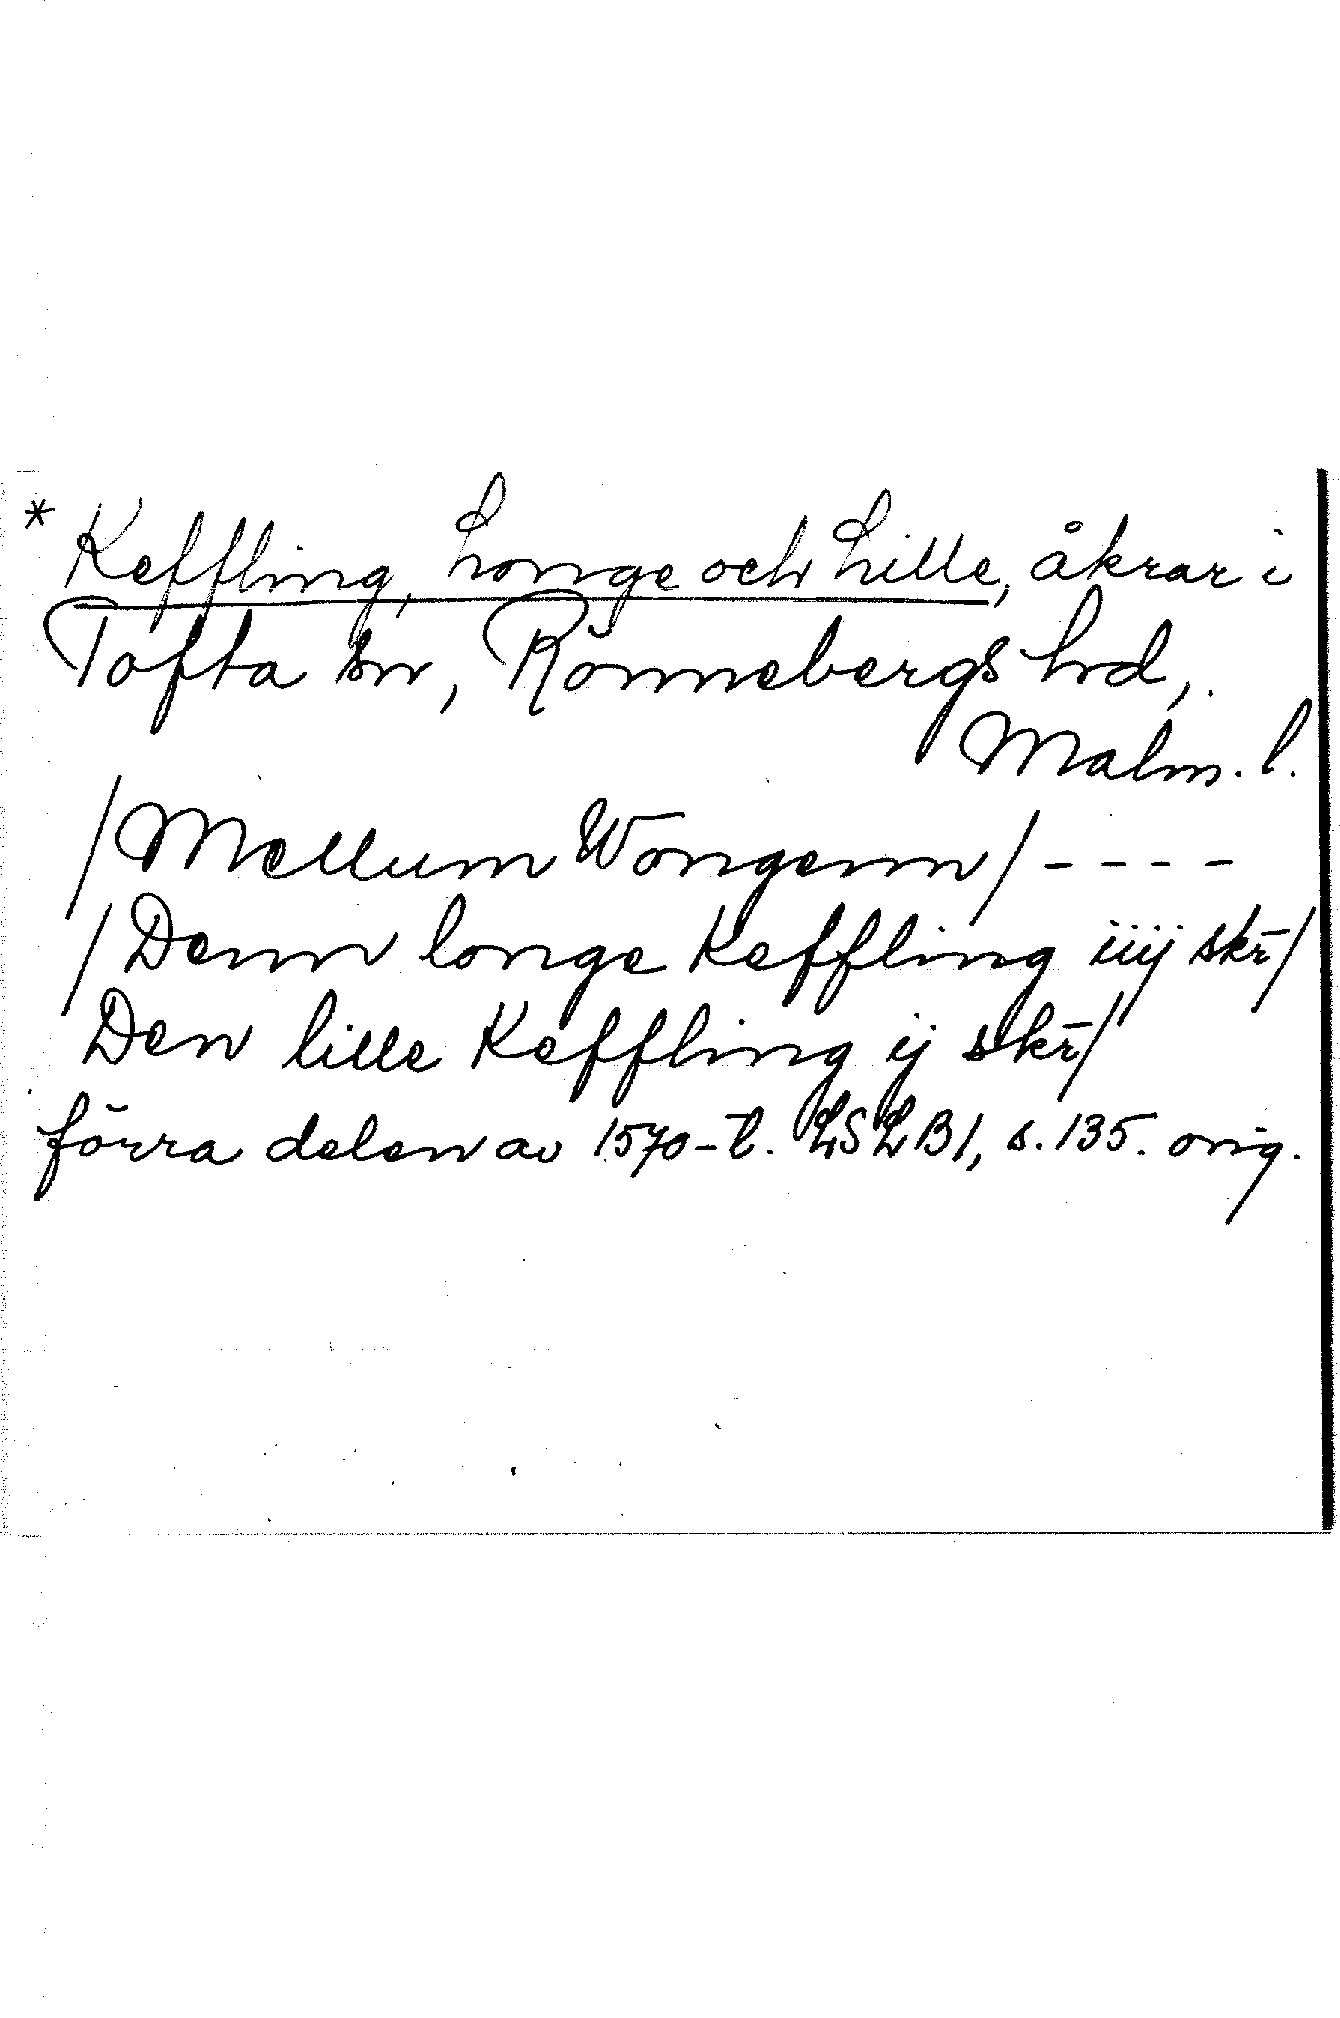 * Keffling, Longe och Lille, åkrar i
Tofta sn, Rönnebergs hd,
Malm. l.
/Mellum Wongenn/ - - - -
/Denn longe Keffling iiij skr̄/
Den lille Keffling ij skr̄/
förra delen av 1570-t. LSLB1, s. 135. orig.